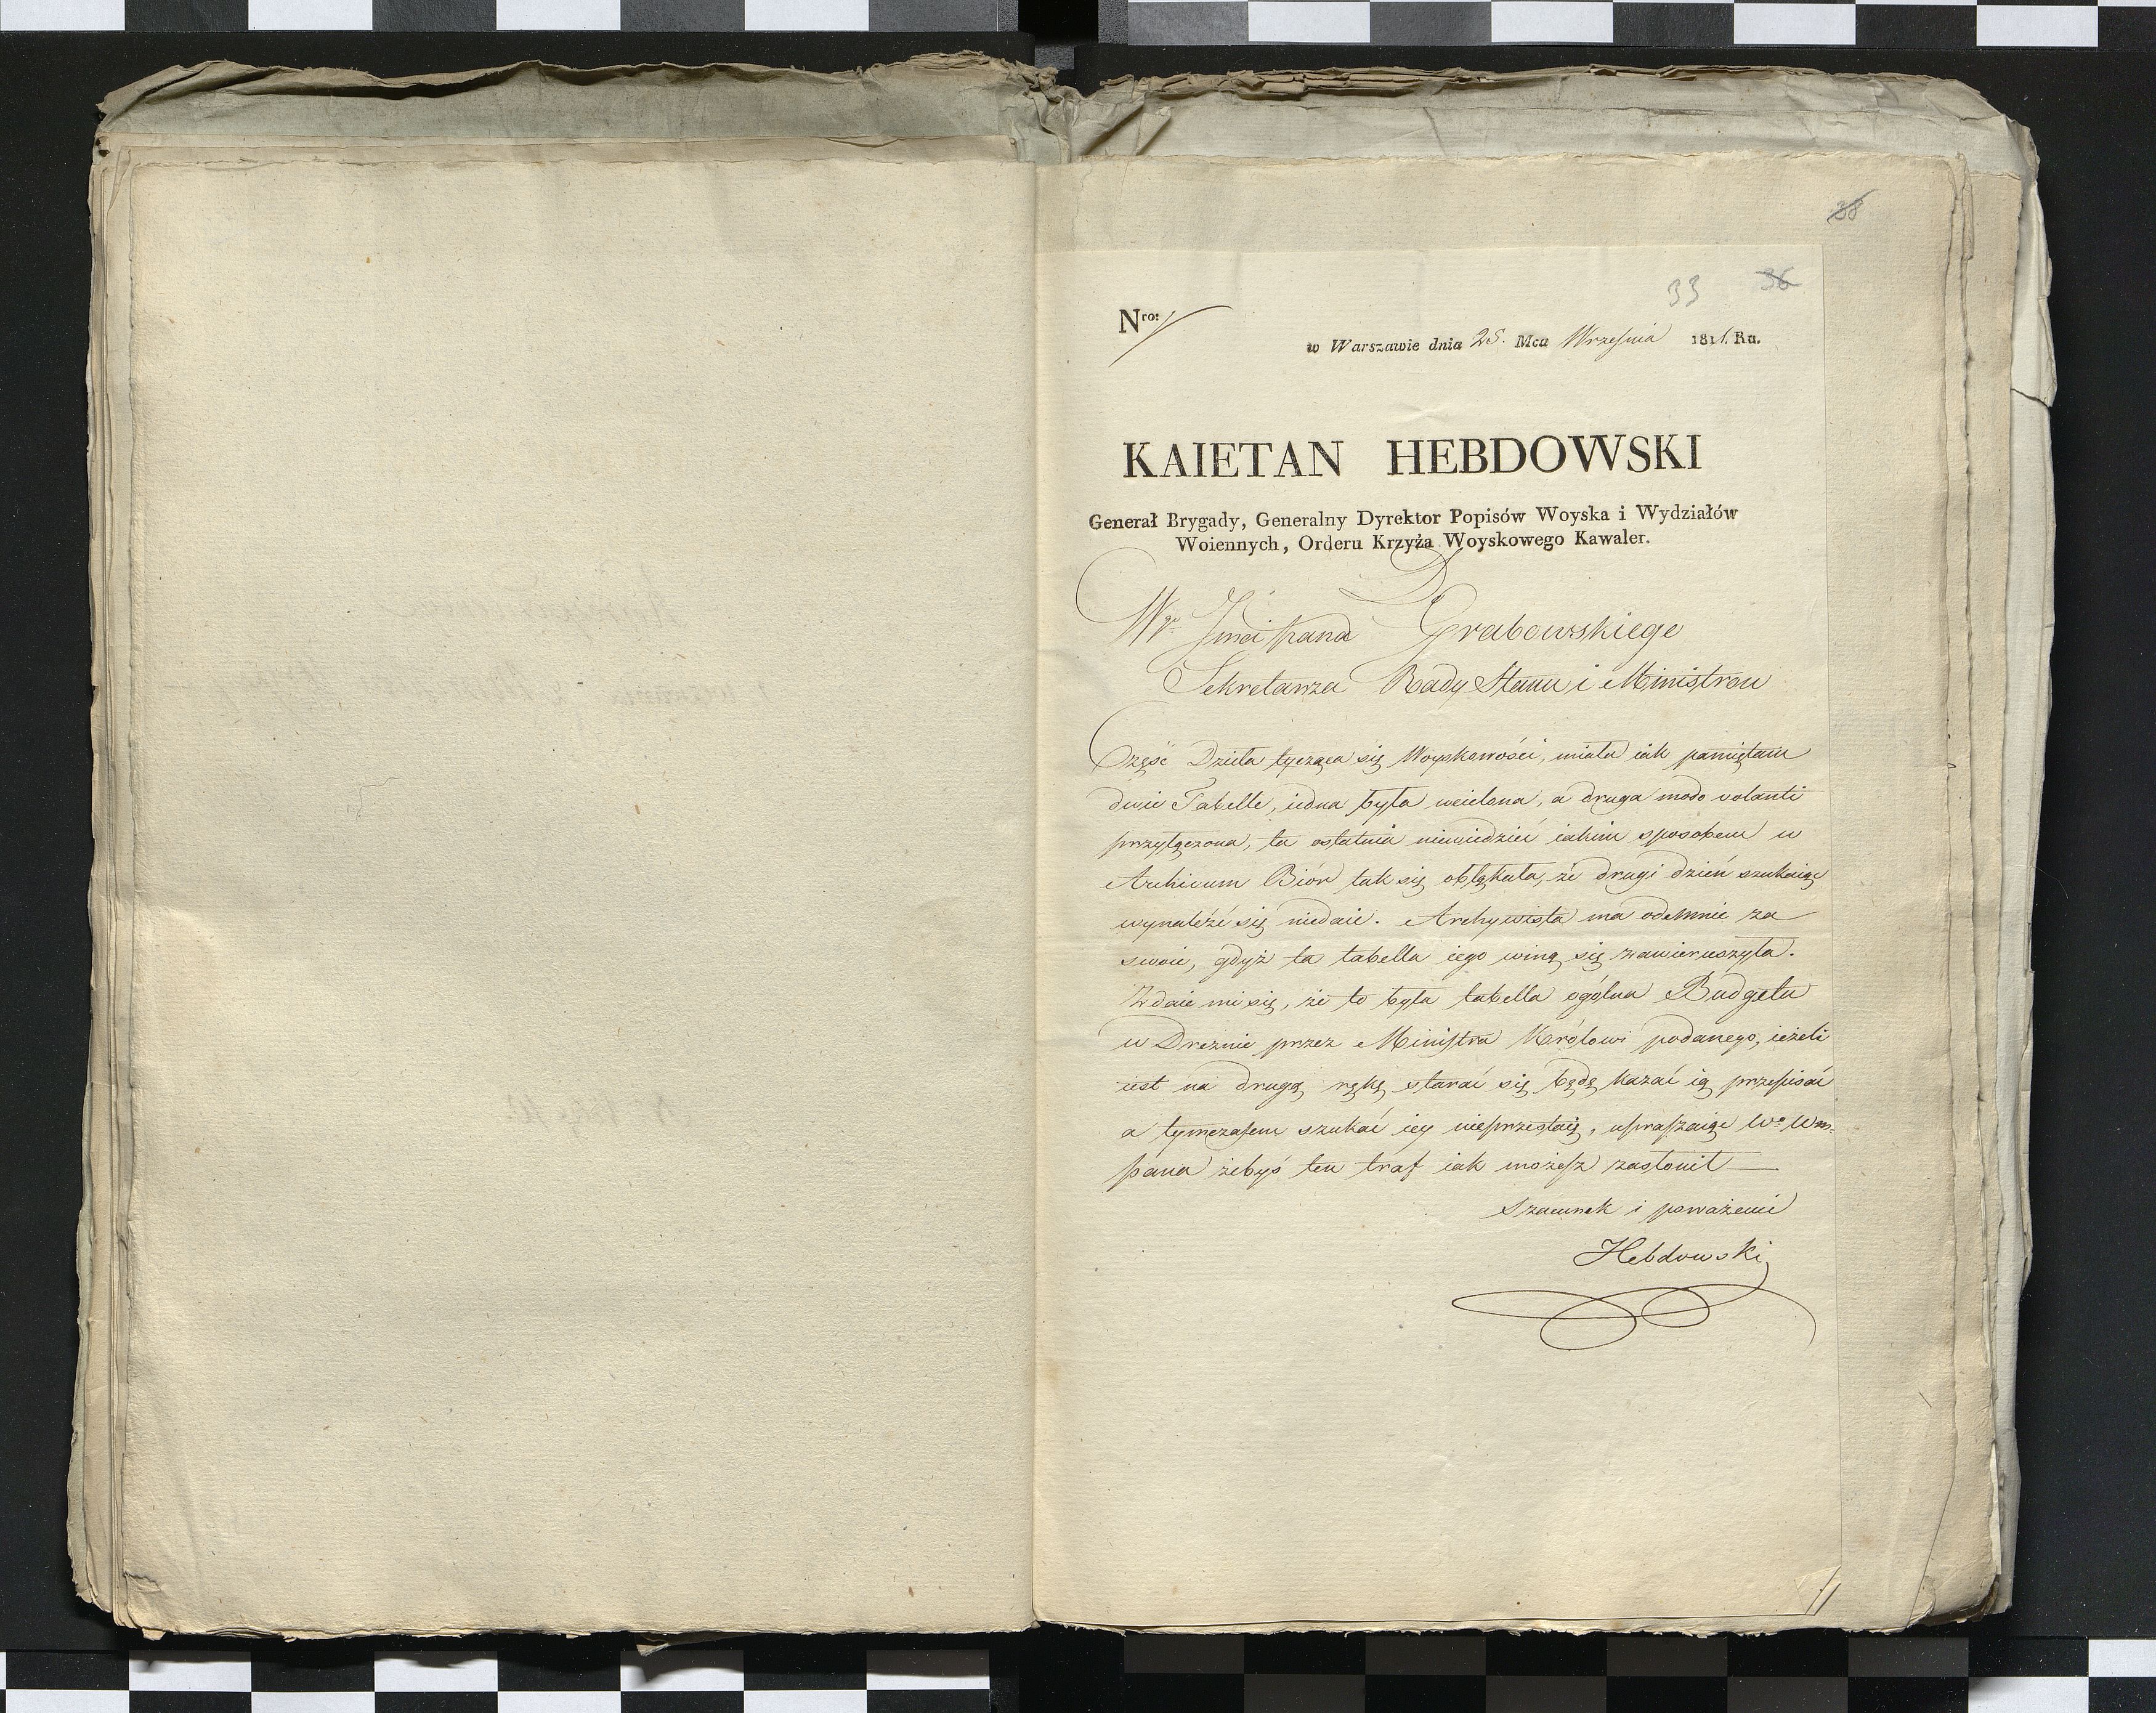 38
33 36
Nro:
w Warszawie dnia 25. Mca Września 1811. Ru.
KAIETAN HEBDOWSKI
Generał Brygady, Generalny Dyrektor Popisów Woyska i Wydziałów
Woiennych, Orderu Krzyża Woyskowego Kawaler.
Do
Wgo Jmci Pana Grabowskiego
Sekretarza Rady Stanu i Ministrow
Część Dzieła tycząca się Woyskowości, miała iak pamiętam
dwie Tabelle, iedna była wcielona, a druga modo volanti
przyłączona, ta ostatnia niewiedzieć iakim sposobem w
Archivum Biór tak się obłąkała, że drugi dzień szukaiąc
wynaleźć się niedaie. Archywista ma odemnie za
swoie, gdyż ta tabella iego winą się zawieruszyła.
Zdaie mi się, że to była tabella ogólna Budgetu
w Dreznie przez Ministra Królowi podanego, ieżeli
iest na drugą rękę starać się będę kazać ią przepisać
a tymczasem szukać iey nieprzestaię, upraszaiąc Wo Wm
Pana żebyś ten traf iak możesz zasłonił
Szacunek i poważenie
Hebdowski